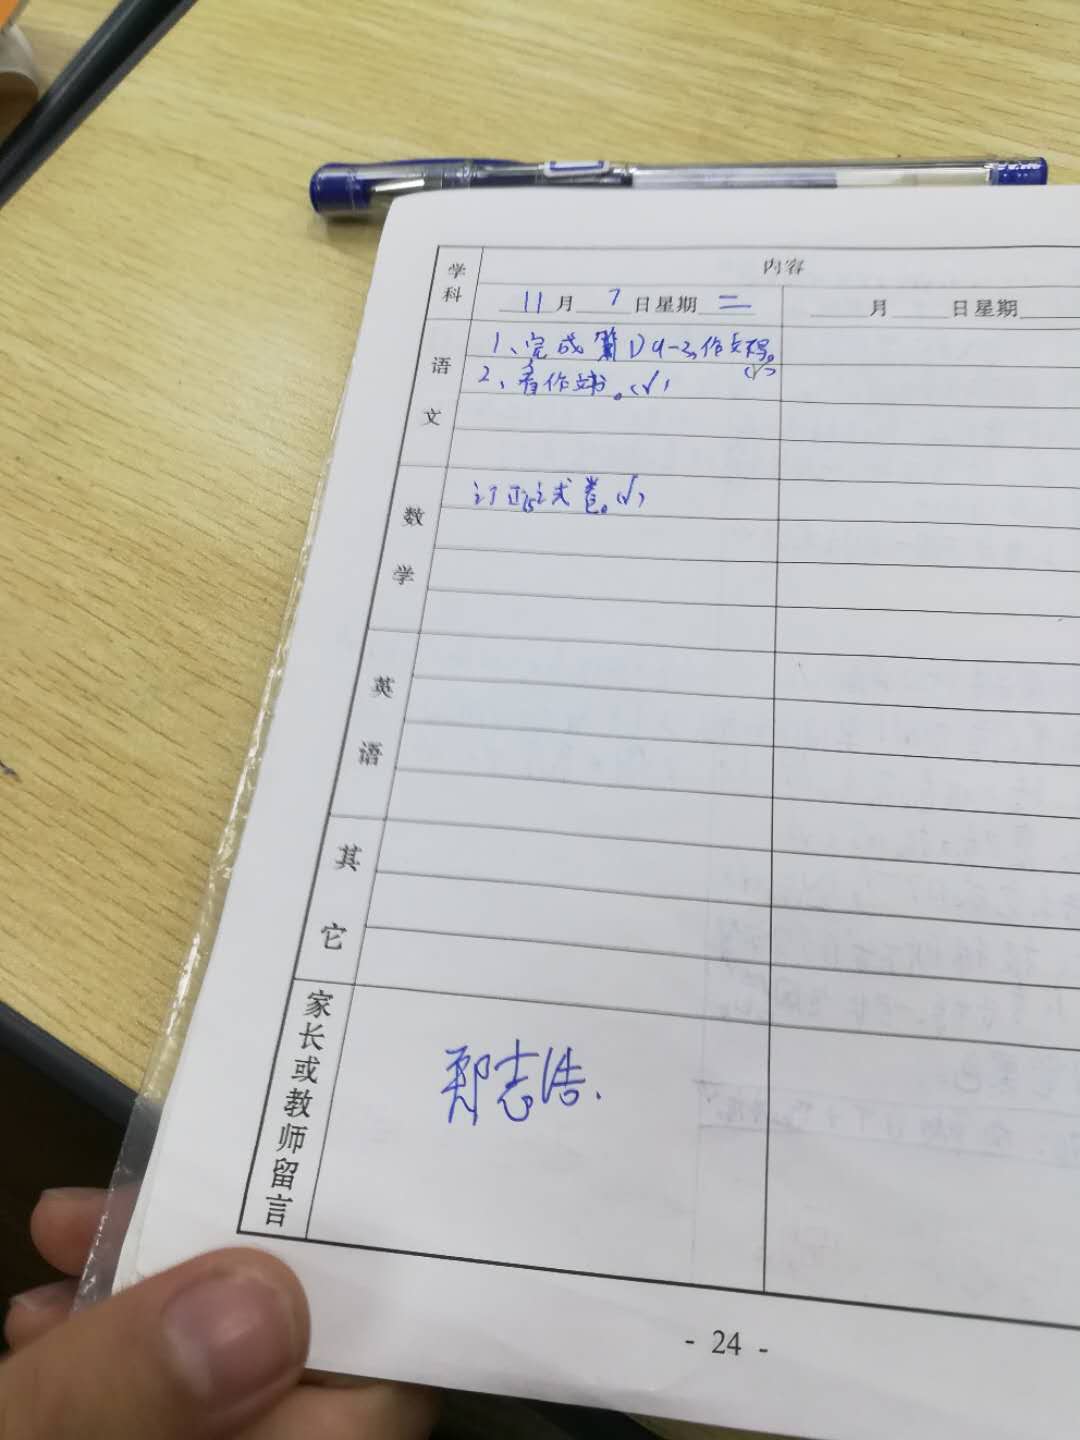 学科 内容
11月7日星期二 月 日星期
语文
1、完成第 作文
2、看作文书。(√)
数学
订正试卷。(√)
英语
其它
家长或教师留言
郑志浩.
- 24 -